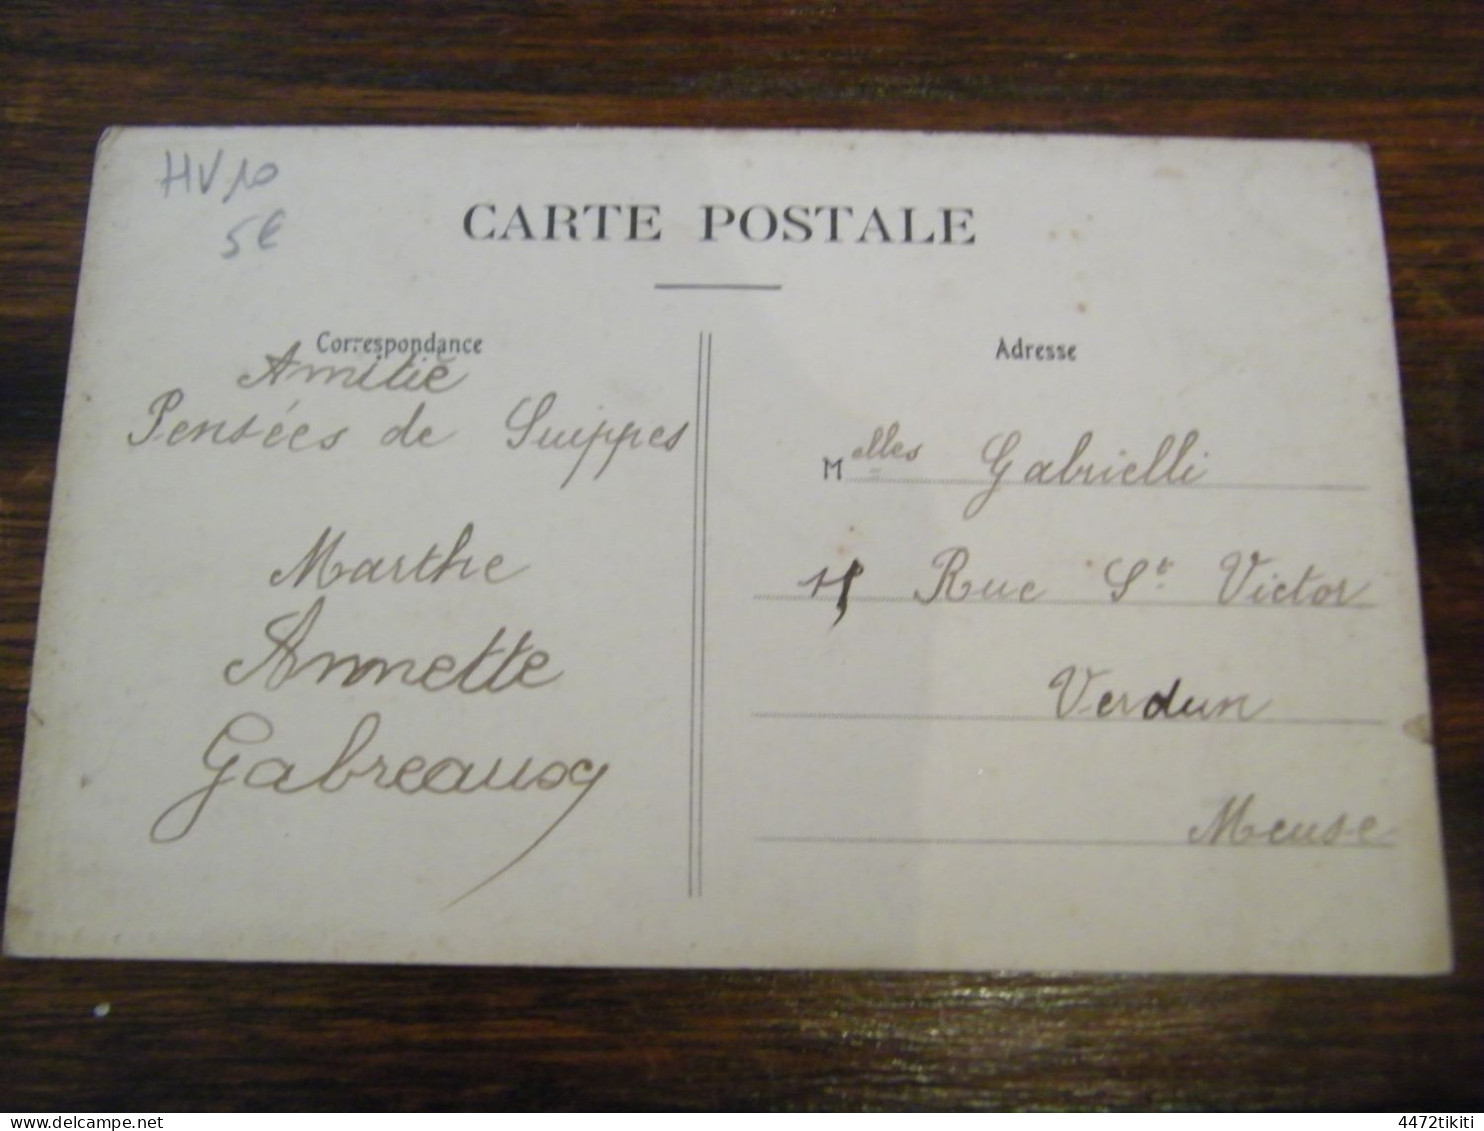 HV10
5€
CARTE POSTALE
Correspondance
Amitié
Pensées de Suippes
Marthe
Annette
Gabreaux
Adresse
Melles Gabrielli
Rue St Victor
Verdun
Meuse
4472tikiti